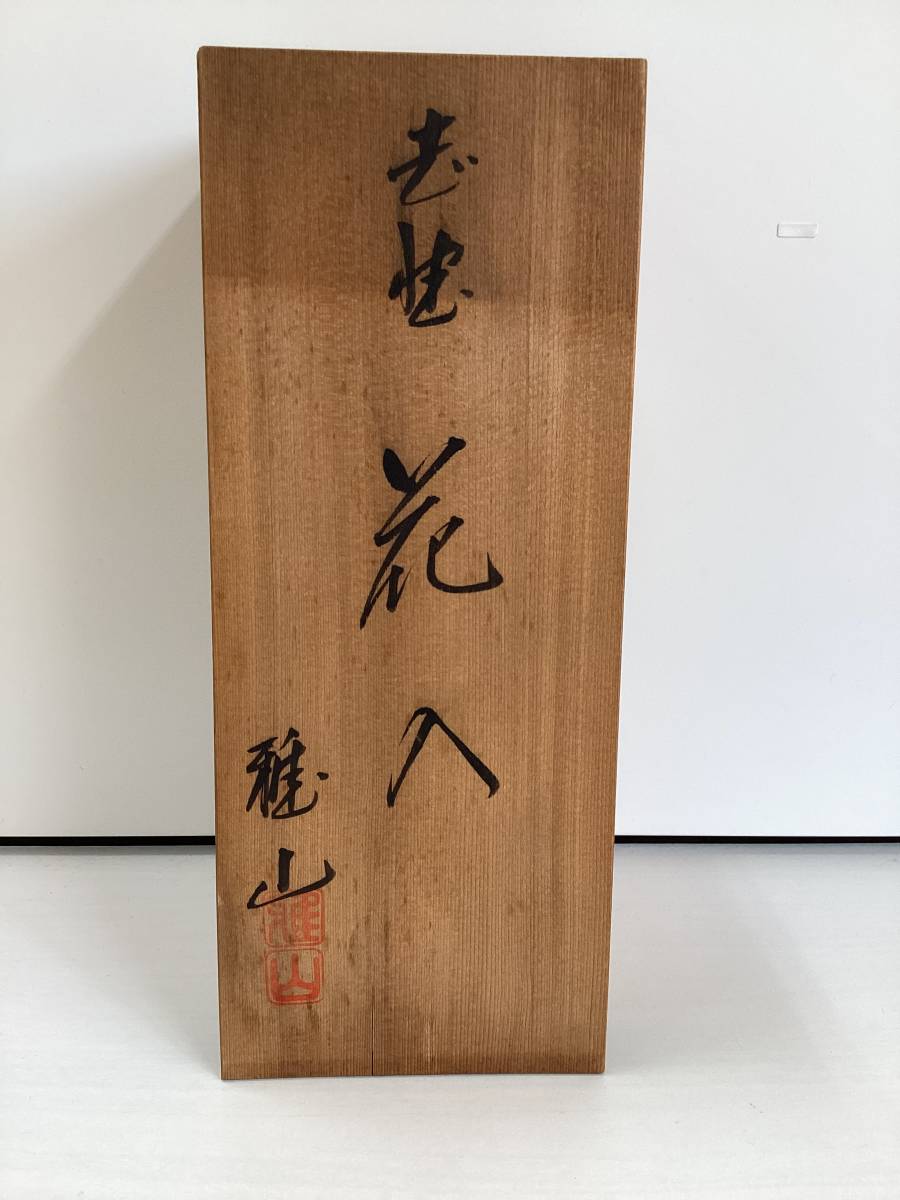 志野
花入
雅山
雅
山